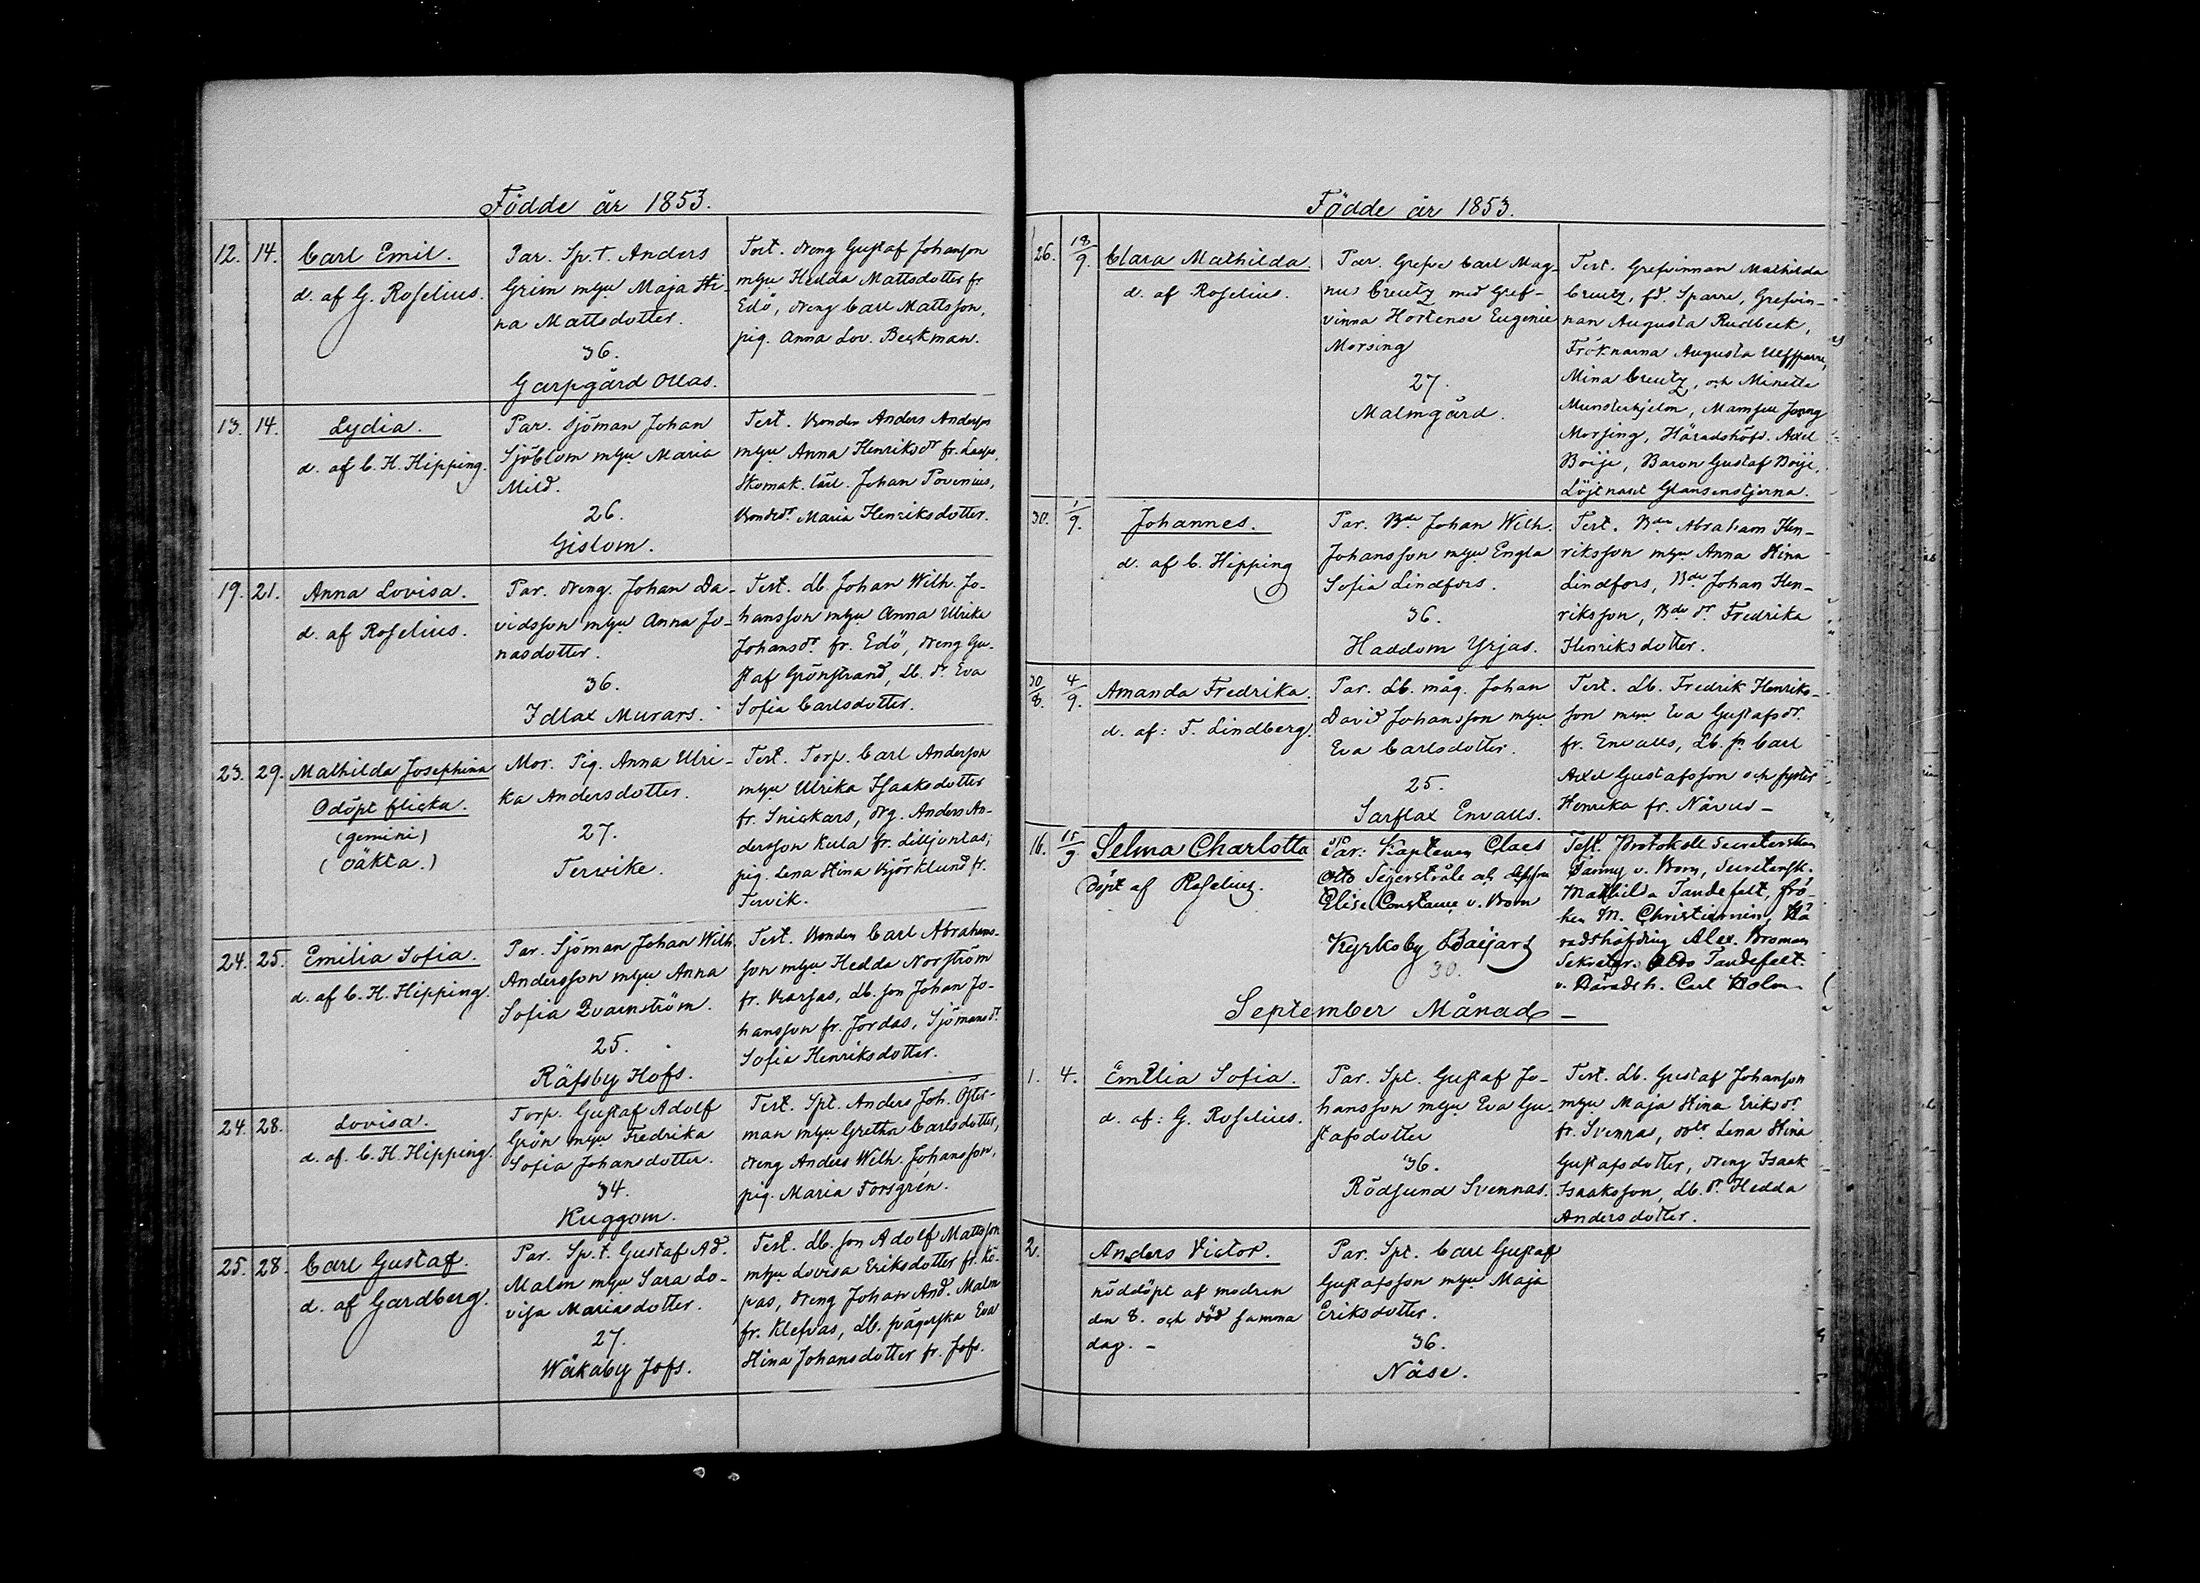 Födde år 1853.
12. 14. Carl Emil.
d. af G. Roselius.
Par. Sp.t. Anders
Grim mhu Maja Sti-
na Mattsdotter.
36.
Garpgård Ollas.
Test. dreng Gustaf Johansson
mhu Hedda Mattsdotter fr
Edö, dreng Carl Mattsson,
pig. Anna Lov. Beckman.
13. 14. Lydia.
d. af C. H. Hipping.
Par. sjöman Johan
Sjöblom mhu Maria
Mild.
26.
Gislom.
Test. Bonden Anders Anderss
mhu Anna Henriksdr fr.
Skomak. lärl. Johan Povenius,
Bondedr Maria Henriksdotter.
19. 21. Anna Lovisa.
d. af Roselius.
Par. dreng. Johan Da-
vidsson mhu Anna Jo-
nasdotter.
36.
Idlax Murars.
Test. Lb. Johan Wilh. Jo-
hansson mhu Anna Ulrika
Johansdr. fr. Edö, dreng Gu-
staf Grönstrand, Lb. dr. Eva
Sofia Carlsdotter.
23. 29. Mathilda Josephina
Odöpt flicka.
(gemini)
(oäkta.)
Mor. Pig. Anna Ulri-
ka Andersdotter.
27.
Tervike.
Test. Torp. Carl Andersson
mhu Ulrika Isaaksdotter
fr. Snickars, drg. Anders An-
dersson Kula fr. Lilljontas,
pig. Lena Stina Björklund fr.
Tervik.
24. 25. Emilia Sofia.
d. af C. H. Hipping.
Par. Sjöman Johan Wilh
Andersson mhu Anna
Sofia Qvarnström.
25.
Räfsby Hofs.
Test. Bonden Carl Abrahams-
son mhu Hedda Norström
fr. Karsas, Lb. son Johan Jo-
hansson fr. Jordas, Sjömansdr.
Sofia Henriksdotter.
24. 28. Lovisa.
d. af C. H. Hipping.
Torp. Gustaf Adolf
Grön mhu Fredrika
Sofia Johansdotter.
34.
Kuggom.
Test. Spt. Anders Joh. Öster-
man mhu Gretha Carlsdotter,
dreng Anders Wilh. Johansson,
pig. Maria Forsgrén.
25. 28. Carl Gustaf.
d. af Gardberg.
Par. Sp.t. Gustaf Ad.
Malm mhu Sara Lo-
visa Mariasdotter.
27.
Wäkaby Jofs.
Test. Lb. son Adolf Mattsson
mhu Lovisa Eriksdotter fr. Kö-
pas, dreng Johan And. Malm
fr. Klefvas, Lb. pigerska Eva
Stina Johansdotter fr. Jofs.
Födde år 1853.
26. 18/9. Clara Mathilda.
d. af Roselius.
Par. Grefve Carl Mag-
nus Creutz med Gref-
vinna Hortense Eugenie
Morsing
27.
Malmgård.
Test. Grefvinnan Mathilda
Creutz, fd. Sparre, Grefvin-
nan Augusta Rudbeck,
Fröknarna Augusta Ulfsparre,
Mina Creutz, och Minette
Munsterhjelm, Mamsell Jenny
Morsing, Häradshöfd. Axel
Boije, Baron Gustaf Boije,
Löjtnant Glansenstjerna.
30. 1/9. Johannes.
d. af C. Hipping
Par. Bde Johan Wilh.
Johansson mhu Engla
Sofia Lindfors.
36.
Haddom Yrjas.
Test. Bden Abraham Hen-
riksson mhu Anna Stina
Lindfors, Bde Johan Hen-
riksson, Bde dr. Fredrika
Henriksdotter.
30/8. 4/9. Amanda Fredrika.
d. af: F. Lindberg.
Par. Lb. måg. Johan
David Johansson mhu
Eva Carlsdotter.
25.
Sarflax Envalls.
Test. Lb. Fredrik Henriks-
son mhu Eva Gustafsdr.
fr. Envalls, Lb. sn Carl
Axel Gustafsson och syster
Henrika fr. Närvus -
16. 15/9 Selma Charlotta
Döpt af Roselius.
Par: Kaptenen Claes
Otto Segerstråle och
Elise Constance v. Born
Kyrkoby Baijars
30.
Test. Protokolls Secreterskan
Fanny v. Born, Secretersk.
Mathilda Tandefelt, Frö-
ken M. Christiernin, Hä
radshöfding Alex. Broman
Sekreter. Otto Tandefelt
v. Häradsh. Carl Holm.
September Månad -
1. 4. Emilia Sofia.
d. af: G. Roselius.
Par. Spt. Gustaf Jo-
hansson mhu Eva Gu-
stafsdotter
36.
Rödsund Svennas.
Test. Lb. Gustaf Johansson
mhu Maja Stina Eriksdr
fr. Svennas, Lena Stina
Gustafsdotter, dreng Isaak
Isaaksson, Lb. dr. Hedda
Andersdotter.
2. Anders Victor.
nöddöpt af modren
den 8. och död samma
dag. -
Par. Spt. Carl Gustaf
Gustafsson mhu Maja
Eriksdotter.
36.
Näse.